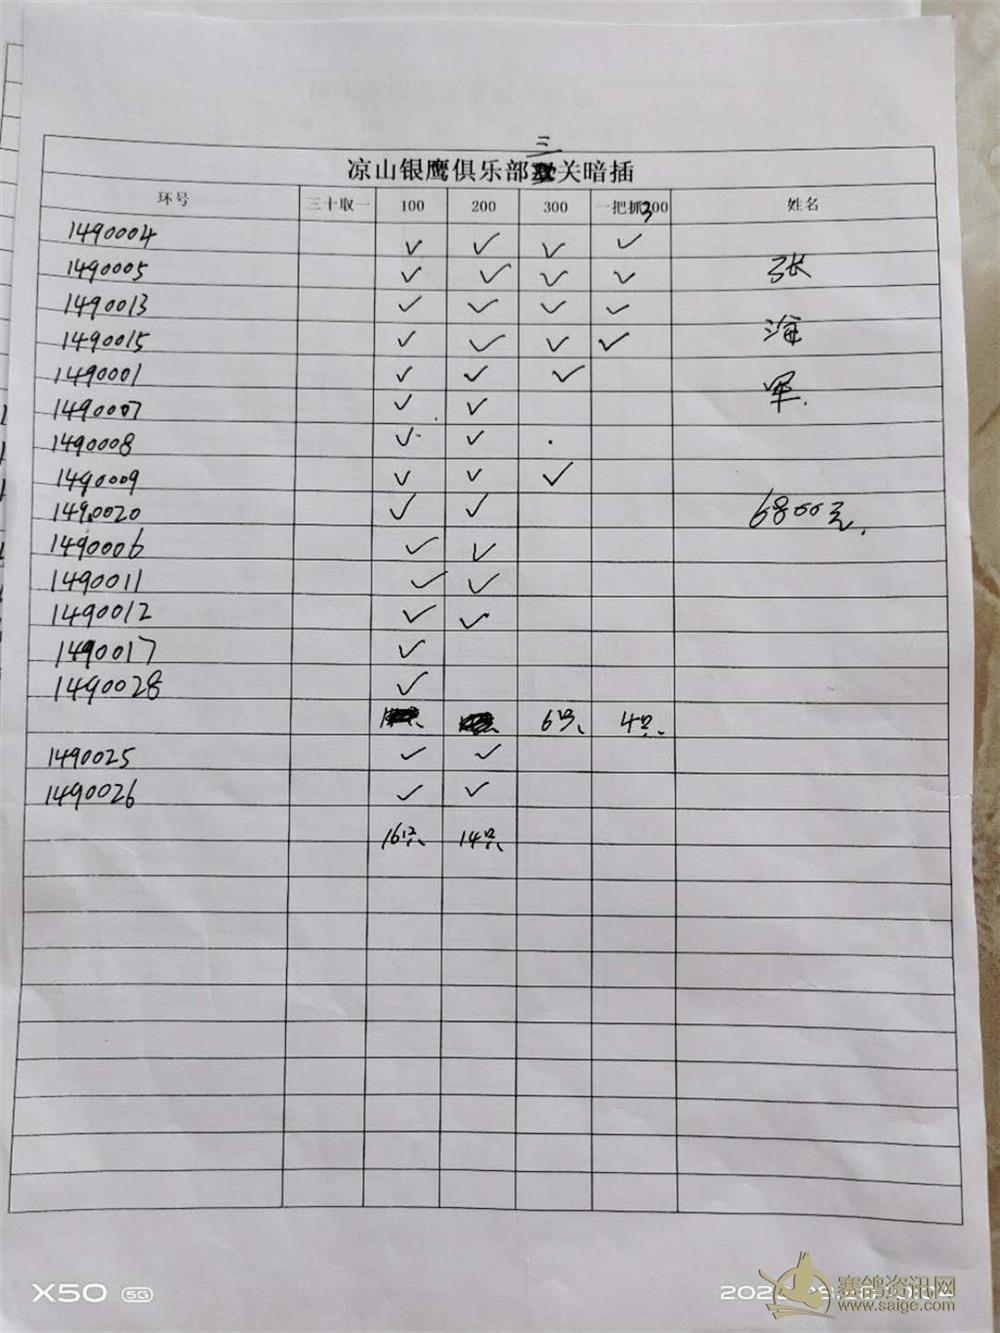 三
凉山银鹰俱乐部关暗插
环号 三十取一 100 200 300 一把抓300 姓名
1490004 ✓ ✓ ✓ ✓
1490005 ✓ ✓ ✓ ✓ 张
1490013 ✓ ✓ ✓ ✓
1490015 ✓ ✓ ✓ ✓ 海
1490001 ✓ ✓ ✓
1490007 ✓ ✓ 军.
1490008 ✓ ✓
1490009 ✓ ✓ ✓
1490020 ✓ ✓ 6800元.
1490006 ✓ ✓
1490011 ✓ ✓
1490012 ✓ ✓
1490017 ✓
1490028 ✓
6只、 4只、
1490025 ✓ ✓
1490026 ✓ ✓
16只、 14只、
X50 5G
赛鸽资讯网
www.saige.com